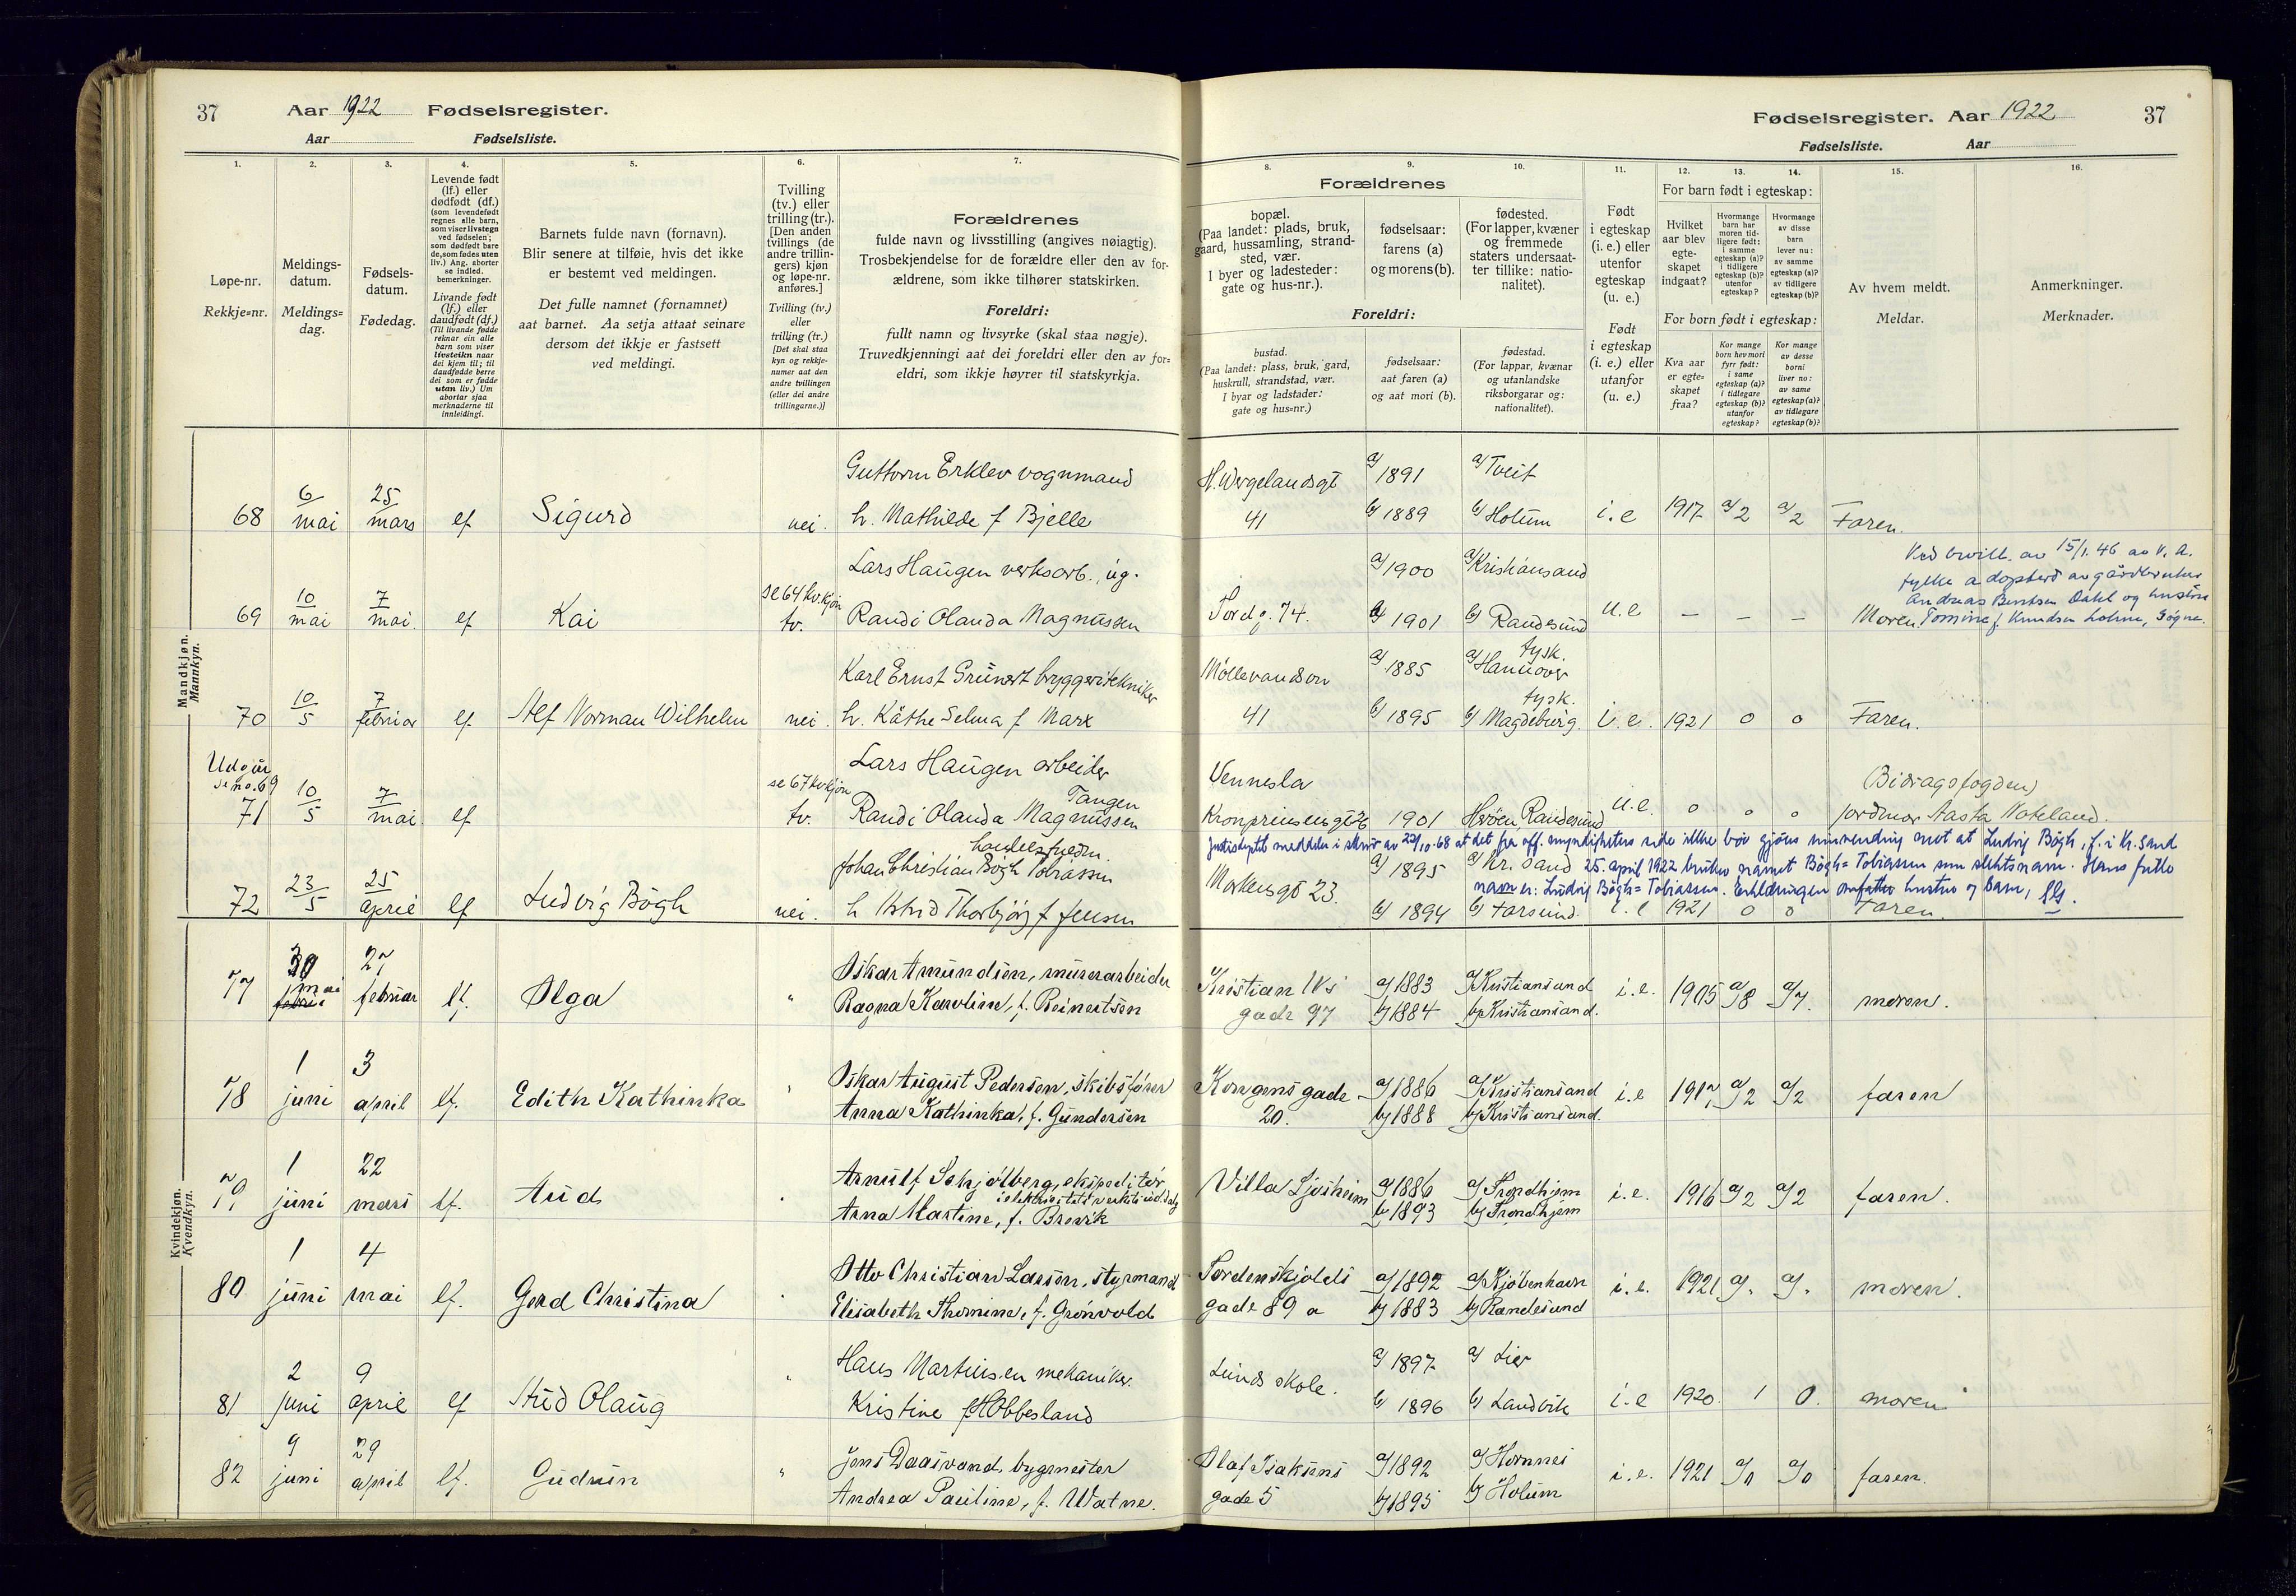 37 Aar 1922 Fødselsregister.
Aar Fødselsliste.
Fødselsregister. Aar 1922 37
Fødselsliste. Aar
1. 2. 3. 4. 5. 6. 7.
Løpe-nr.
Rekkje=nr.
Meldings-
datum.
Meldings=
dag.
Fødsels-
datum.
Fødedag.
Levende født
(lf.) eller
dødfødt (df.)
(som levendefødt
regnes alle barn,
som viser livstegn
ved fødselen;
som dødfødt bare
de, som fødes uten
liv.) Ang. aborter
se indled.
bemerkninger.
Livande født
(lf.) eller
daudfødt (df.)
(Til livande fødde
reknar ein alle
barn som viser
livsteikn naar
dei kjem til; til
daudfødde berre
dei som er fødde
utan liv.) Um
abortar sjaa
merknaderne til
innleidingi.
Barnets fulde navn (fornavn).
Blir senere at tilføie, hvis det ikke
er bestemt ved meldingen.
Det fulle namnet (fornamnet)
aat barnet. Aa setja attaat seinare
dersom det ikkje er fastsett
ved meldingi.
Tvilling
(tv.) eller
trilling (tr.).
[Den anden
tvillings (de
andre trillin-
gers) kjøn
og løpe-nr.
anføres.]
Tvilling (tv.)
eller
trilling (tr.)
[Det skal staa
kyn og rekkje-
numer aat den
andre tvillingen
(eller dei andre
trillingarne.)]
Forældrenes
fulde navn og livsstilling (angives nøiagtig).
Trosbekjendelse for de forældre eller den av for-
ældrene, som ikke tilhører statskirken.
Foreldri:
fullt namn og livsyrke (skal staa nøgje).
Truvedkjenningi aat dei foreldri eller den av for=
eldri, som ikkje høyrer til statskyrkja.
8. 9. 10. 11. 12. 13. 14. 15. 16.
Forældrenes
bopæl.
(Paa landet: plads, bruk,
gaard, hussamling, strand-
sted, vær.
I byer og ladesteder:
gate og hus-nr.).
fødselsaar:
farens (a)
og morens (b).
fødested.
(For lapper, kvæner
og fremmede
staters undersaat-
ter tillike: natio-
nalitet).
Foreldri:
bustad.
(Paa landet: plass, bruk, gard,
huskrull, strandstad, vær.
I byar og ladstader:
gate og hus=nr.)
fødselsaar:
aat faren (a)
og aat mori (b).
fødestad.
(For lappar, kvænar
og utanlandske
riksborgarar og:
nationalitet).
Født
i egteskap
(i. e.) eller
utenfor
egteskap
(u. e.)
Født
i egteskap
(i. e.) eller
utanfor
(u. e.)
For barn født i egteskap:
Hvilket
aar blev
egte-
skapet
indgaat?
Hvormange
barn har
moren tid-
ligere født:
i samme
egteskap (a)?
i tidligere
egteskap (b)?
utenfor
egteskap?
Hvormange
av disse
barn
lever nu:
av samme
egteskap (a)?
av tidligere
egteskap (b)?
For born født i egteskap:
Kva aar
er egte=
skapet
fraa?
Kor mange
born hev mori
fyrr født:
i same
egteskap (a)?
i tidlegare
egteskap (b)?
utanfor
egteskap?
Kor mange
av desse
borni
liver no:
av same
egteskap (a)?
av tidlegare
egteskap (b)?
Av hvem meldt.
Meldar.
Anmerkninger.
Merknader.
Mandkjøn.
Mannkyn.
68 6/mai 25/mars lf Sigurd nei. Guttorm Erklev vognmand
h. Mathilde f Bjelle
H. Wergelandsgt 41 a/ 1891 b/ 1889 a/ Tveit b/ Holum i.e 1917 a/2 a/2 Faren.
69 10/mai 7/mai. lf Kai se 64 kv.kjøn tv. Lars Haugen verksarb., ug.
Randi Olanda Magnussen
Tord g. 74. a/ 1900 b/ 1901 a/ Kristiansand b/ Randesund u.e – – – Moren.
Ved bevill. av 15/1. 46 av V. A.
fylke adoptert av gårdbruker
Andreas Berntsen Dahl og hustru
Tomine f. Knudsen Lohne, Søgne.
70 10/5 7/februar lf Alf Norman Wilhelm nei. Karl Ernst Grünert bryggeritekniker
h. Käthe Selma f Marx
Möllevandsvn 41 a/ 1885 b/ 1895 a/ Hannover tysk. b/ Magdeburg. tysk. i.e. 1921 0 0 Faren.
Udgår
se no. 69
71 10/5 7/mai lf se 67 kvkjøn tv. Lars Haugen arbeider
Tangen
Randi Olanda Magnussen
Vennesla
Kronprinsensgt 26 1901 Herøen, Randesund u.e. 0 0 0 (Bidragsfogden)
jordmor Aasta Hoteland.
Justisdeptet meddeler i skriv av 22/10-68 at det fra off. myndigheters side ikke bør gjøres innvending mot at Ludvig Bögh, f. i Kr.sand
25. april 1922 bruker navnet Bögh=Tobiassen som slektsnavn. Hans fulle
navn er: Ludvig Bögh=Tobiassen. Erklæringen omfatter hustru og barn,
72 23/5 25/april lf Ludvig Bögh nei. handelsfuldm.
Johan Christian Bögh Tobiassen
h Astrid Thorbjörg f Jensen
Markensgt 23. a/ 1895 b/ 1894 a/ Kr. sand b/ Farsund. i.e 1921 0 0 Faren.
Kvindekjøn.
Kvendkyn.
77 30 mai 27 februar lf. Olga " Oskar Amundsen, murerarbeider
Ragna Karoline, f. Reinertsen
Kristian IVs gade 97 a/1883 b/1884 a/Kristiansand b/Kristiansand. i.e. 1905 a/8 a/7. moren.
78 1 juni 3 april lf. Edith Kathinka " Oskar August Pedersen, skibsfører
Anna Kathinka, f. Gundersen
Kongensgade 20. a/1886 b/1888 a/Kristiansand b/Kristiansand. i.e 1917 a/2 a/2 faren
79 1 juni 22 mars lf. Aud " Arnulf Schjölberg, ekspeditør
Anna Martine, f. Brevik
Villa Ljosheim a/1886 b/1893 a/Trondhjem b/Trondhjem i.e. 1916 a/2 a/2 faren.
80 1 juni 4 mai lf. Gerd Christina " Otto Christian Larsen, styrmand
Elisabeth Thomine, f. Grönvold
Tordenskjolds gade 89 a a/1892 b/1883 a/Kjöbenhavn b/Randesund i.e. 1921 a/. a/. moren.
81 2 juni 9 april lf Astrid Olaug " Hans Martinsen mekaniker.
Kristine f Obbesland
Lunds skole. a/ 1897 b/ 1896 a/ Lier b/ Landvik i.e 1920. 1 0. moren
82 9 juni 29 april lf. Gudrun " Jens Daasvand, bygmester
Andrea Pauline, f. Watne.
Olaf Isaksens gade 5 a/1892 b/1895 a/ Hornnes b/ Holum i.e. 1921 a/0 a/0 faren.